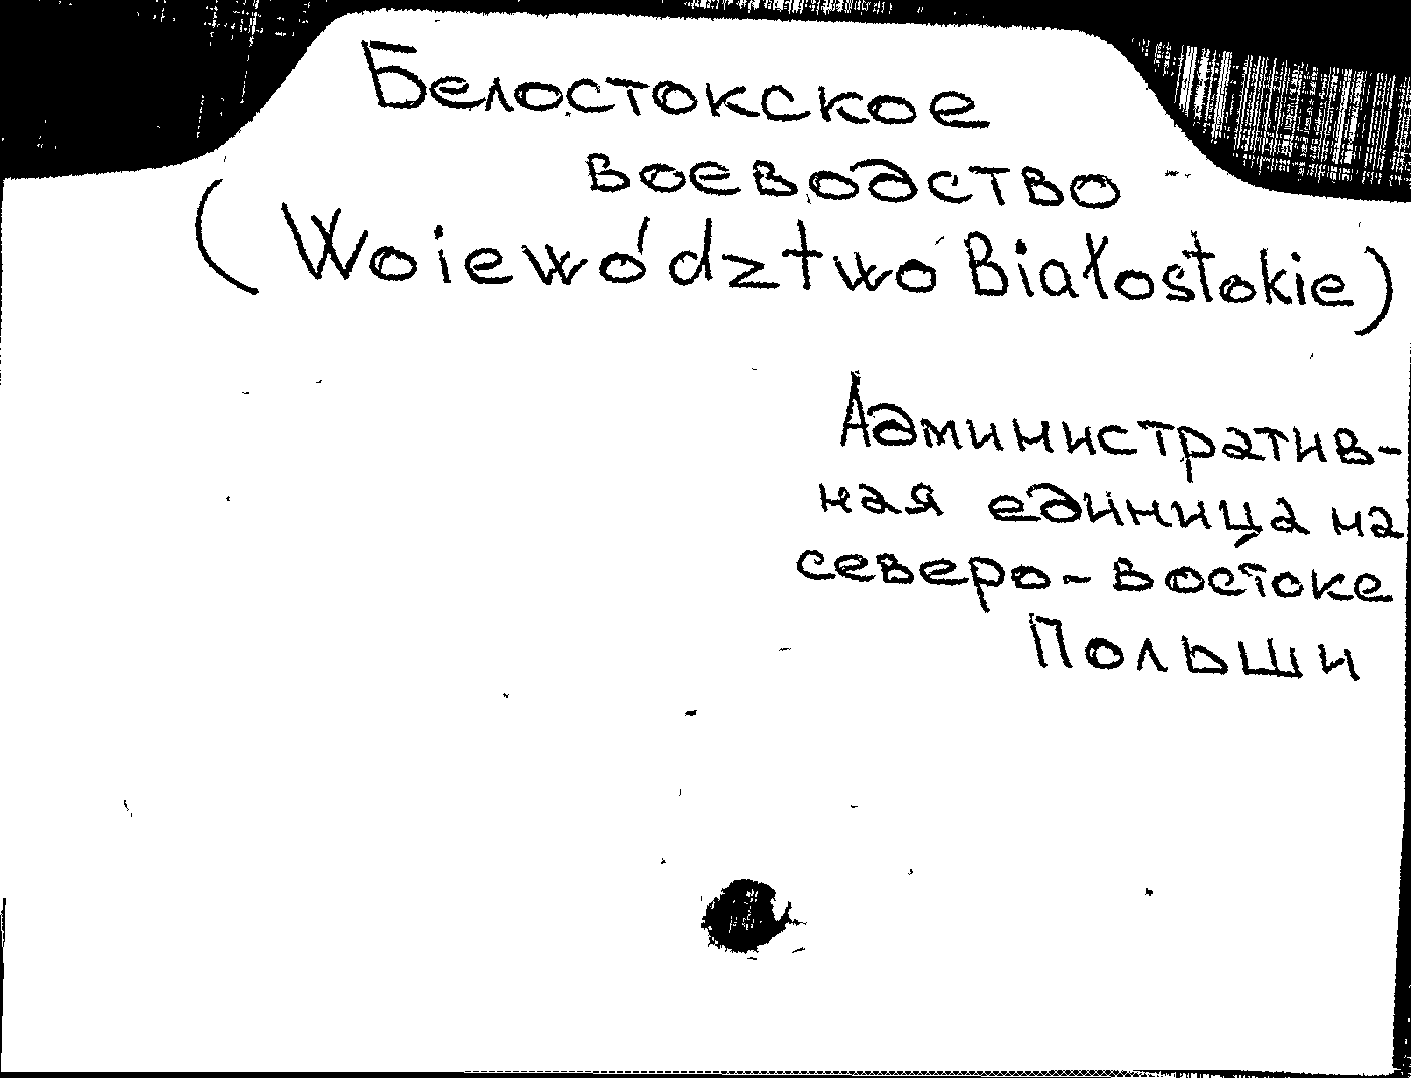 Белостокское
воеводство
(Woiewództwo Białostokie)
Административ-
ная единица на
северо-востоке
Польши